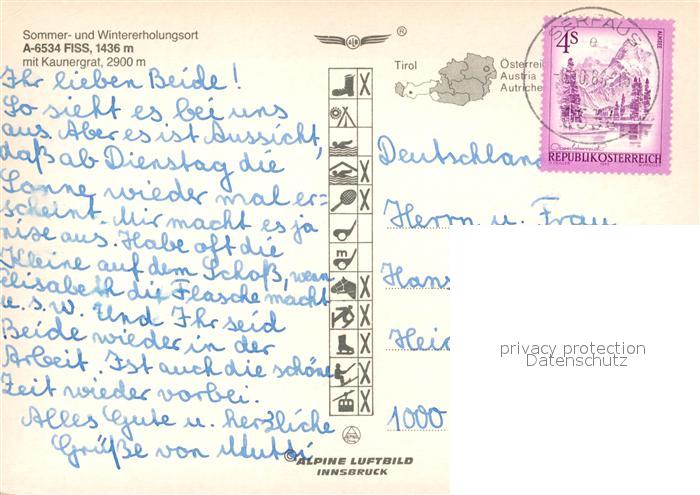 Sommer- und Wintererholungsort
A-6534 FISS, 1436 m
mit Kaunergrat, 2900 m
Ihr lieben Beide!
So sieht es bei uns
aus. Aber es ist Aussicht,
daß ab Dienstag die
Sonne wieder mal er-
scheint. Mir macht es ja
nix aus. Habe oft die
Kleine auf dem Schoß, wenn
Elisabeth die Flasche macht
u. s. w. Und Ihr seid
Beide wieder in der
Arbeit. Ist auch die schöne
Zeit wieder vorbei.
Alles Gute u. herzliche
Grüße von Mutti
®
Tirol
Österreich
Austria
Autriche
m
© ALPINE LUFTBILD
INNSBRUCK
SERFAUS
4S
ALMSEE
REPUBLIK ÖSTERREICH
Deutschland
Herrn u. Frau
Hans
Hein
1000
privacy protection
Datenschutz